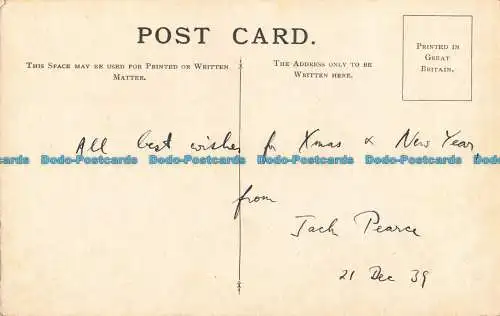 POST CARD.
THIS SPACE MAY BE USED FOR PRINTED OR WRITTEN
MATTER.
THE ADDRESS ONLY TO BE
WRITTEN HERE.
PRINTED IN
GREAT
BRITAIN.
All best wishes for Xmas & New Year,
Dodo-Postcards Dodo-Postcards Dodo-Postcards Dodo-Postcards
from
Jack Pearce
21 Dec 39